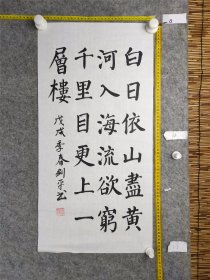 白日依山盡黄
河入海流欲窮
千里目更上一
層樓
戊戌季春劍平书